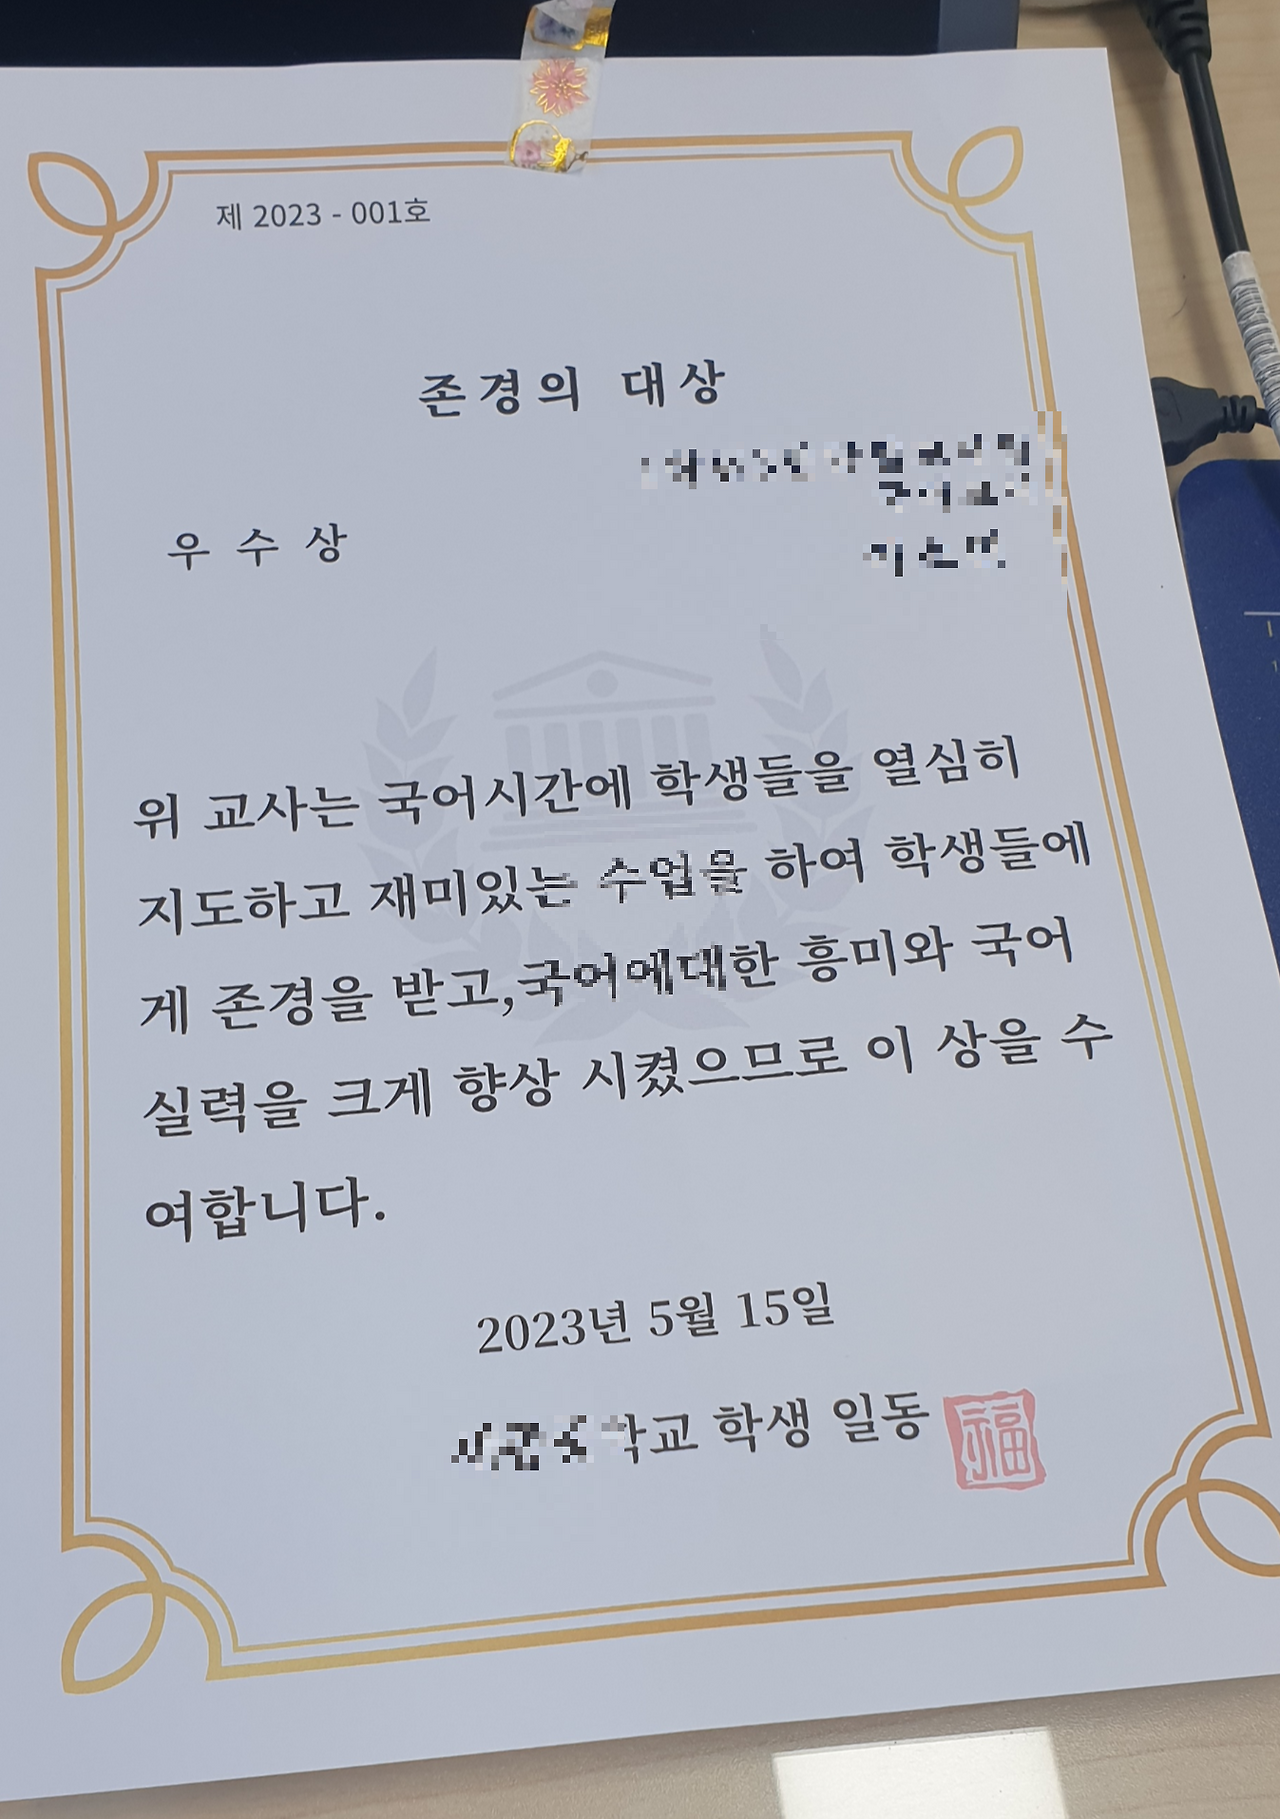 제 2023 - 001호
존경의 대상
우수상
위 교사는 국어시간에 학생들을 열심히
지도하고 재미있는 수업을 하여 학생들에
게 존경을 받고,국어에대한 흥미와 국어
실력을 크게 향상 시켰으므로 이 상을 수
여합니다.
2023년 5월 15일
학교 학생 일동
福